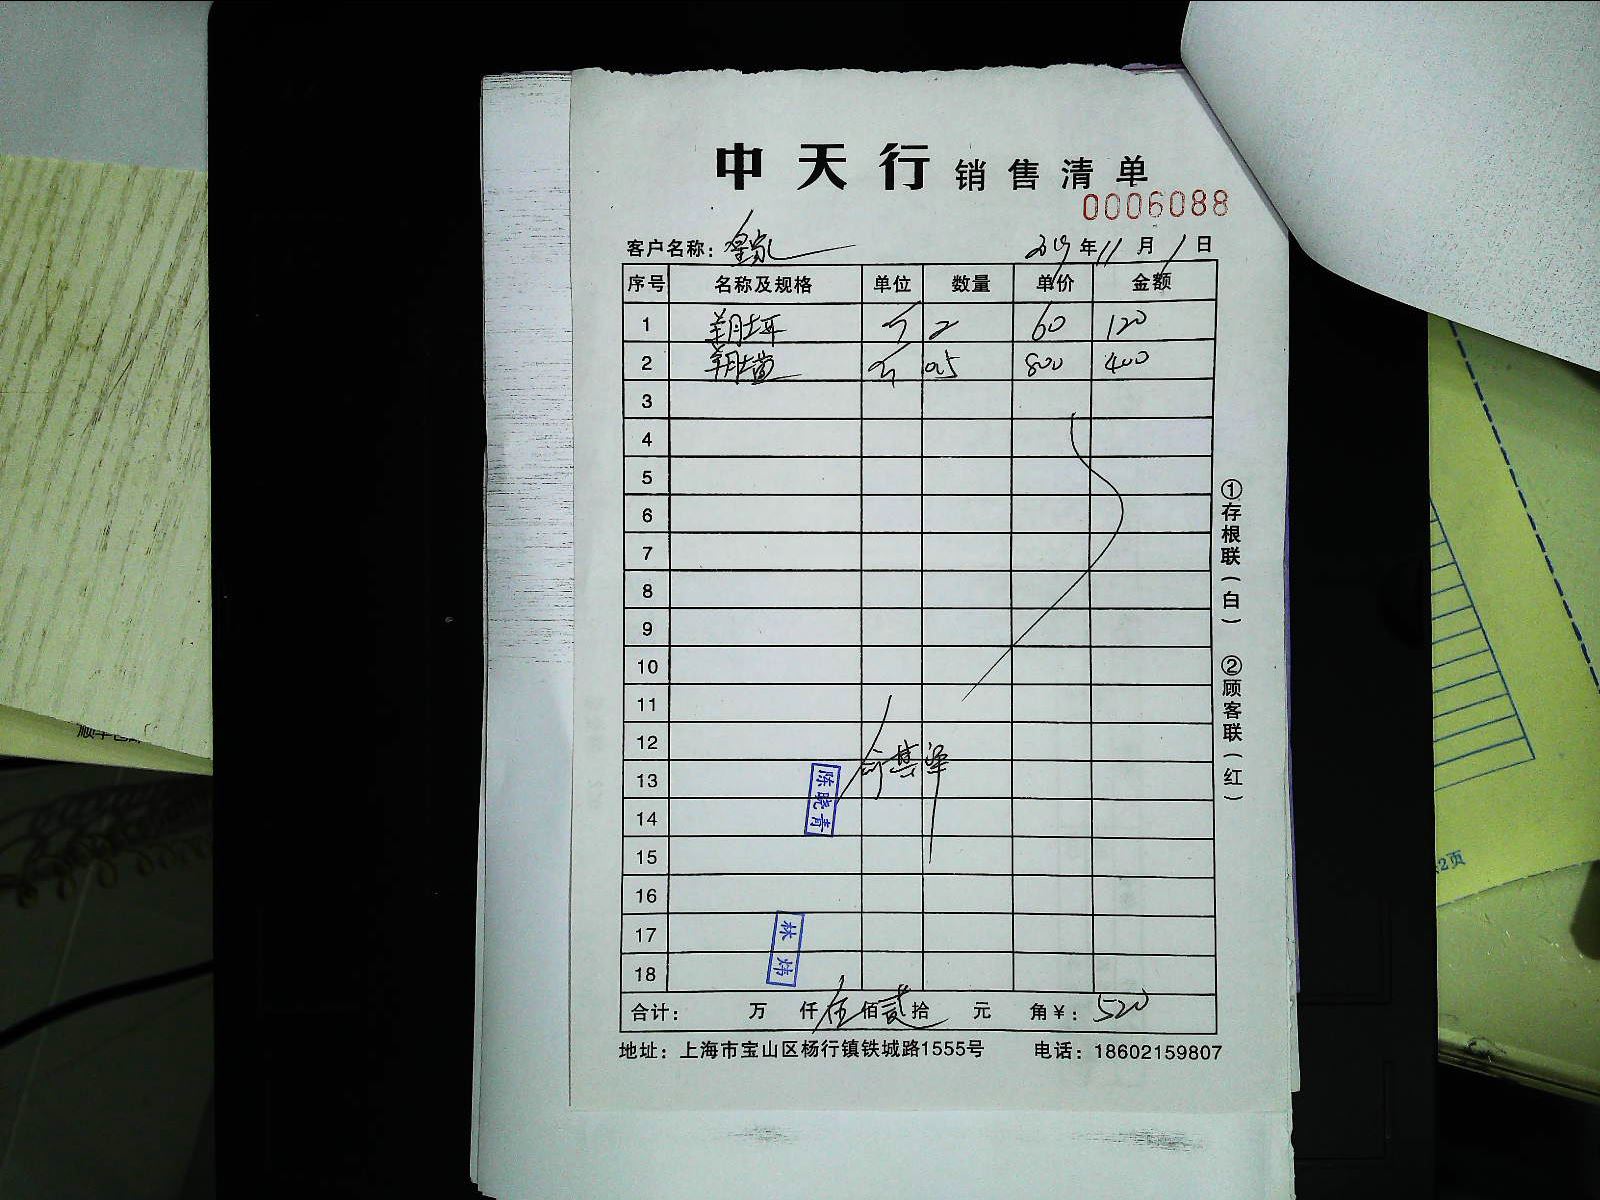 中天行 销售清单
0006088
客户名称： 2019年11月1日
序号 名称及规格 单位 数量 单价 金额
1 2 60 120
2 0.5 800 400
3
4
5
6
7
8
9
10
11
12
13
14
15
16
17
18
陈晓青
林炜
合计： 万 仟伍佰贰拾 元 角￥：520
地址：上海市宝山区杨行镇铁城路1555号 电话：18602159807
①存根联（白） ②顾客联（红）
2页